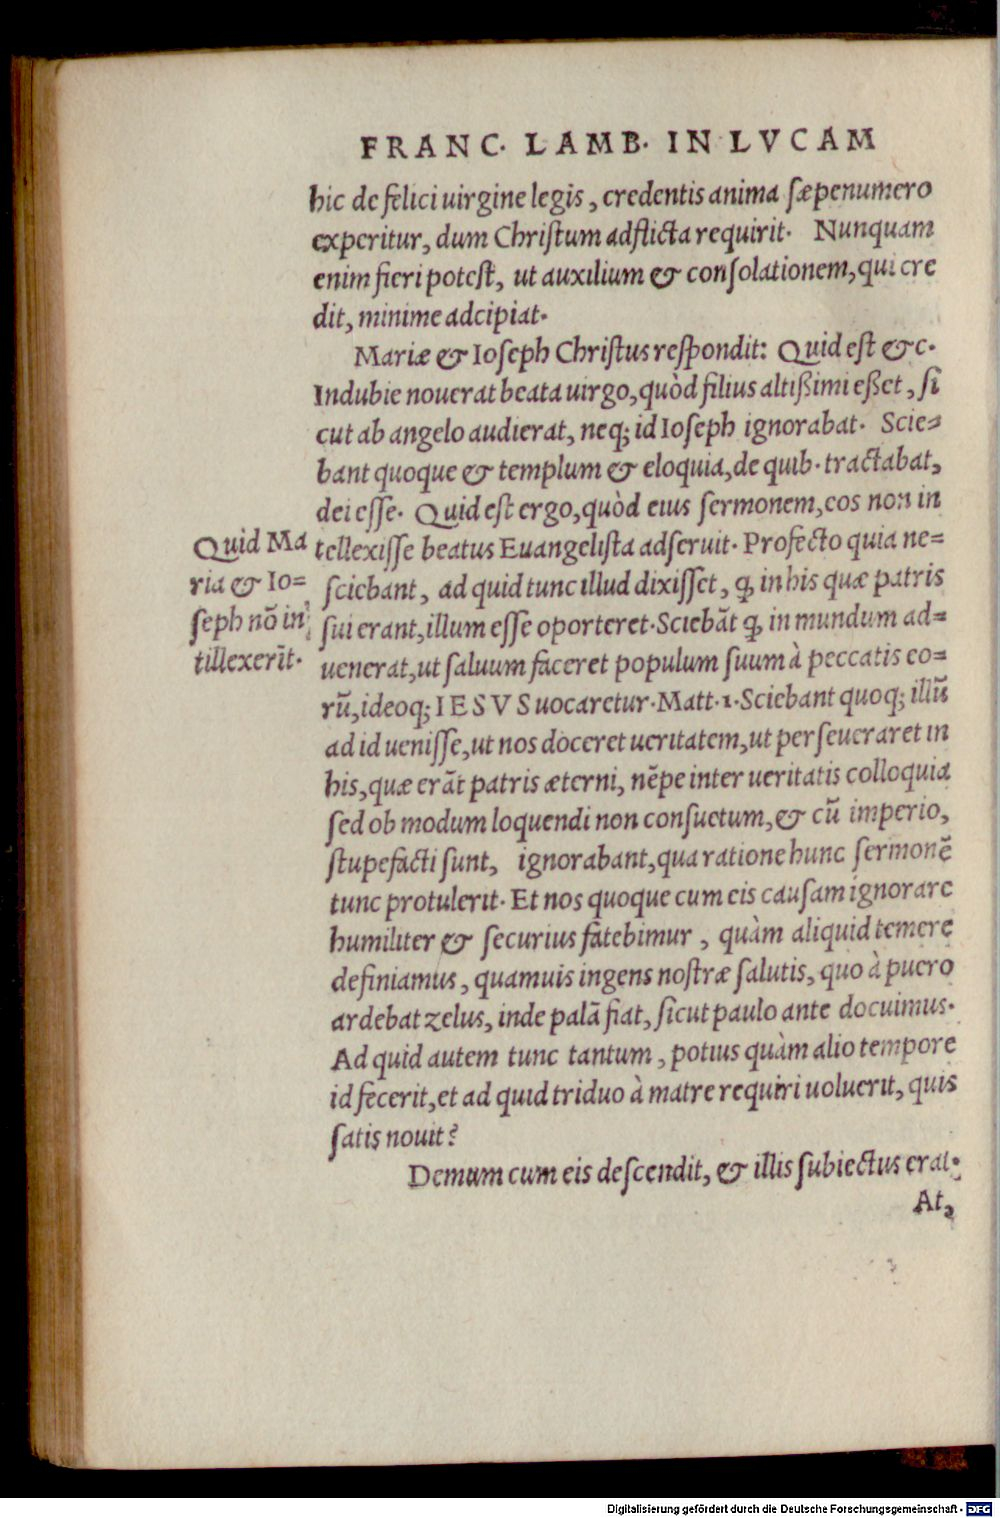 FRANC. LAMB. IN LVCAM
hic de felici uirgine legis, credentis anima sæpenumero
experitur, dum Chriſtum adflicta requirit. Nunquam
enim fieri poteſt, ut auxilium & conſolationem, qui cre
dit, minime adcipiat.
Mariæ & Ioſeph Chriſtus reſpondit: Quid eſt &c.
Indubie nouerat beata uirgo, quòd filius altißimi eßet, ſi
cut ab angelo audierat, neq; id Ioſeph ignorabat. Scie=
bant quoque & templum & eloquia, de quib. tractabat,
dei eſſe. Quid eſt ergo, quòd eius ſermonem, eos non in
Quid Ma
ria & Io=
ſeph nõ in
tillexerīt.
tellexiſſe beatus Euangeliſta adſeruit. Profecto quia ne=
ſciebant, ad quid tunc illud dixiſſet, ꝙ in his quæ patris
ſui erant, illum eſſe oporteret. Sciebãt ꝙ in mundum ad=
uenerat, ut ſaluum faceret populum ſuum à peccatis eo=
rũ, ideoq; IESVS uocaretur. Matt. 1. Sciebant quoq; illũ
ad id ueniſſe, ut nos doceret ueritatem, ut perſeueraret in
his, quæ erãt patris æterni, nẽpe inter ueritatis colloquia
ſed ob modum loquendi non conſuetum, & cũ imperio,
ſtupefacti ſunt, ignorabant, qua ratione hunc ſermonẽ
tunc protulerit. Et nos quoque cum eis cauſam ignorare
humiliter & ſecurius fatebimur, quàm aliquid temere
definiamus, quamuis ingens noſtræ ſalutis, quo à puero
ardebat zelus, inde palã fiat, ſicut paulo ante docuimus.
Ad quid autem tunc tantum, potius quàm alio tempore
id fecerit, et ad quid triduo à matre requiri uoluerit, quis
ſatis nouit?
Demum cum eis deſcendit, & illis ſubiectus erat.
At,
Digitalisierung gefördert durch die Deutsche Forschungsgemeinschaft - DFG